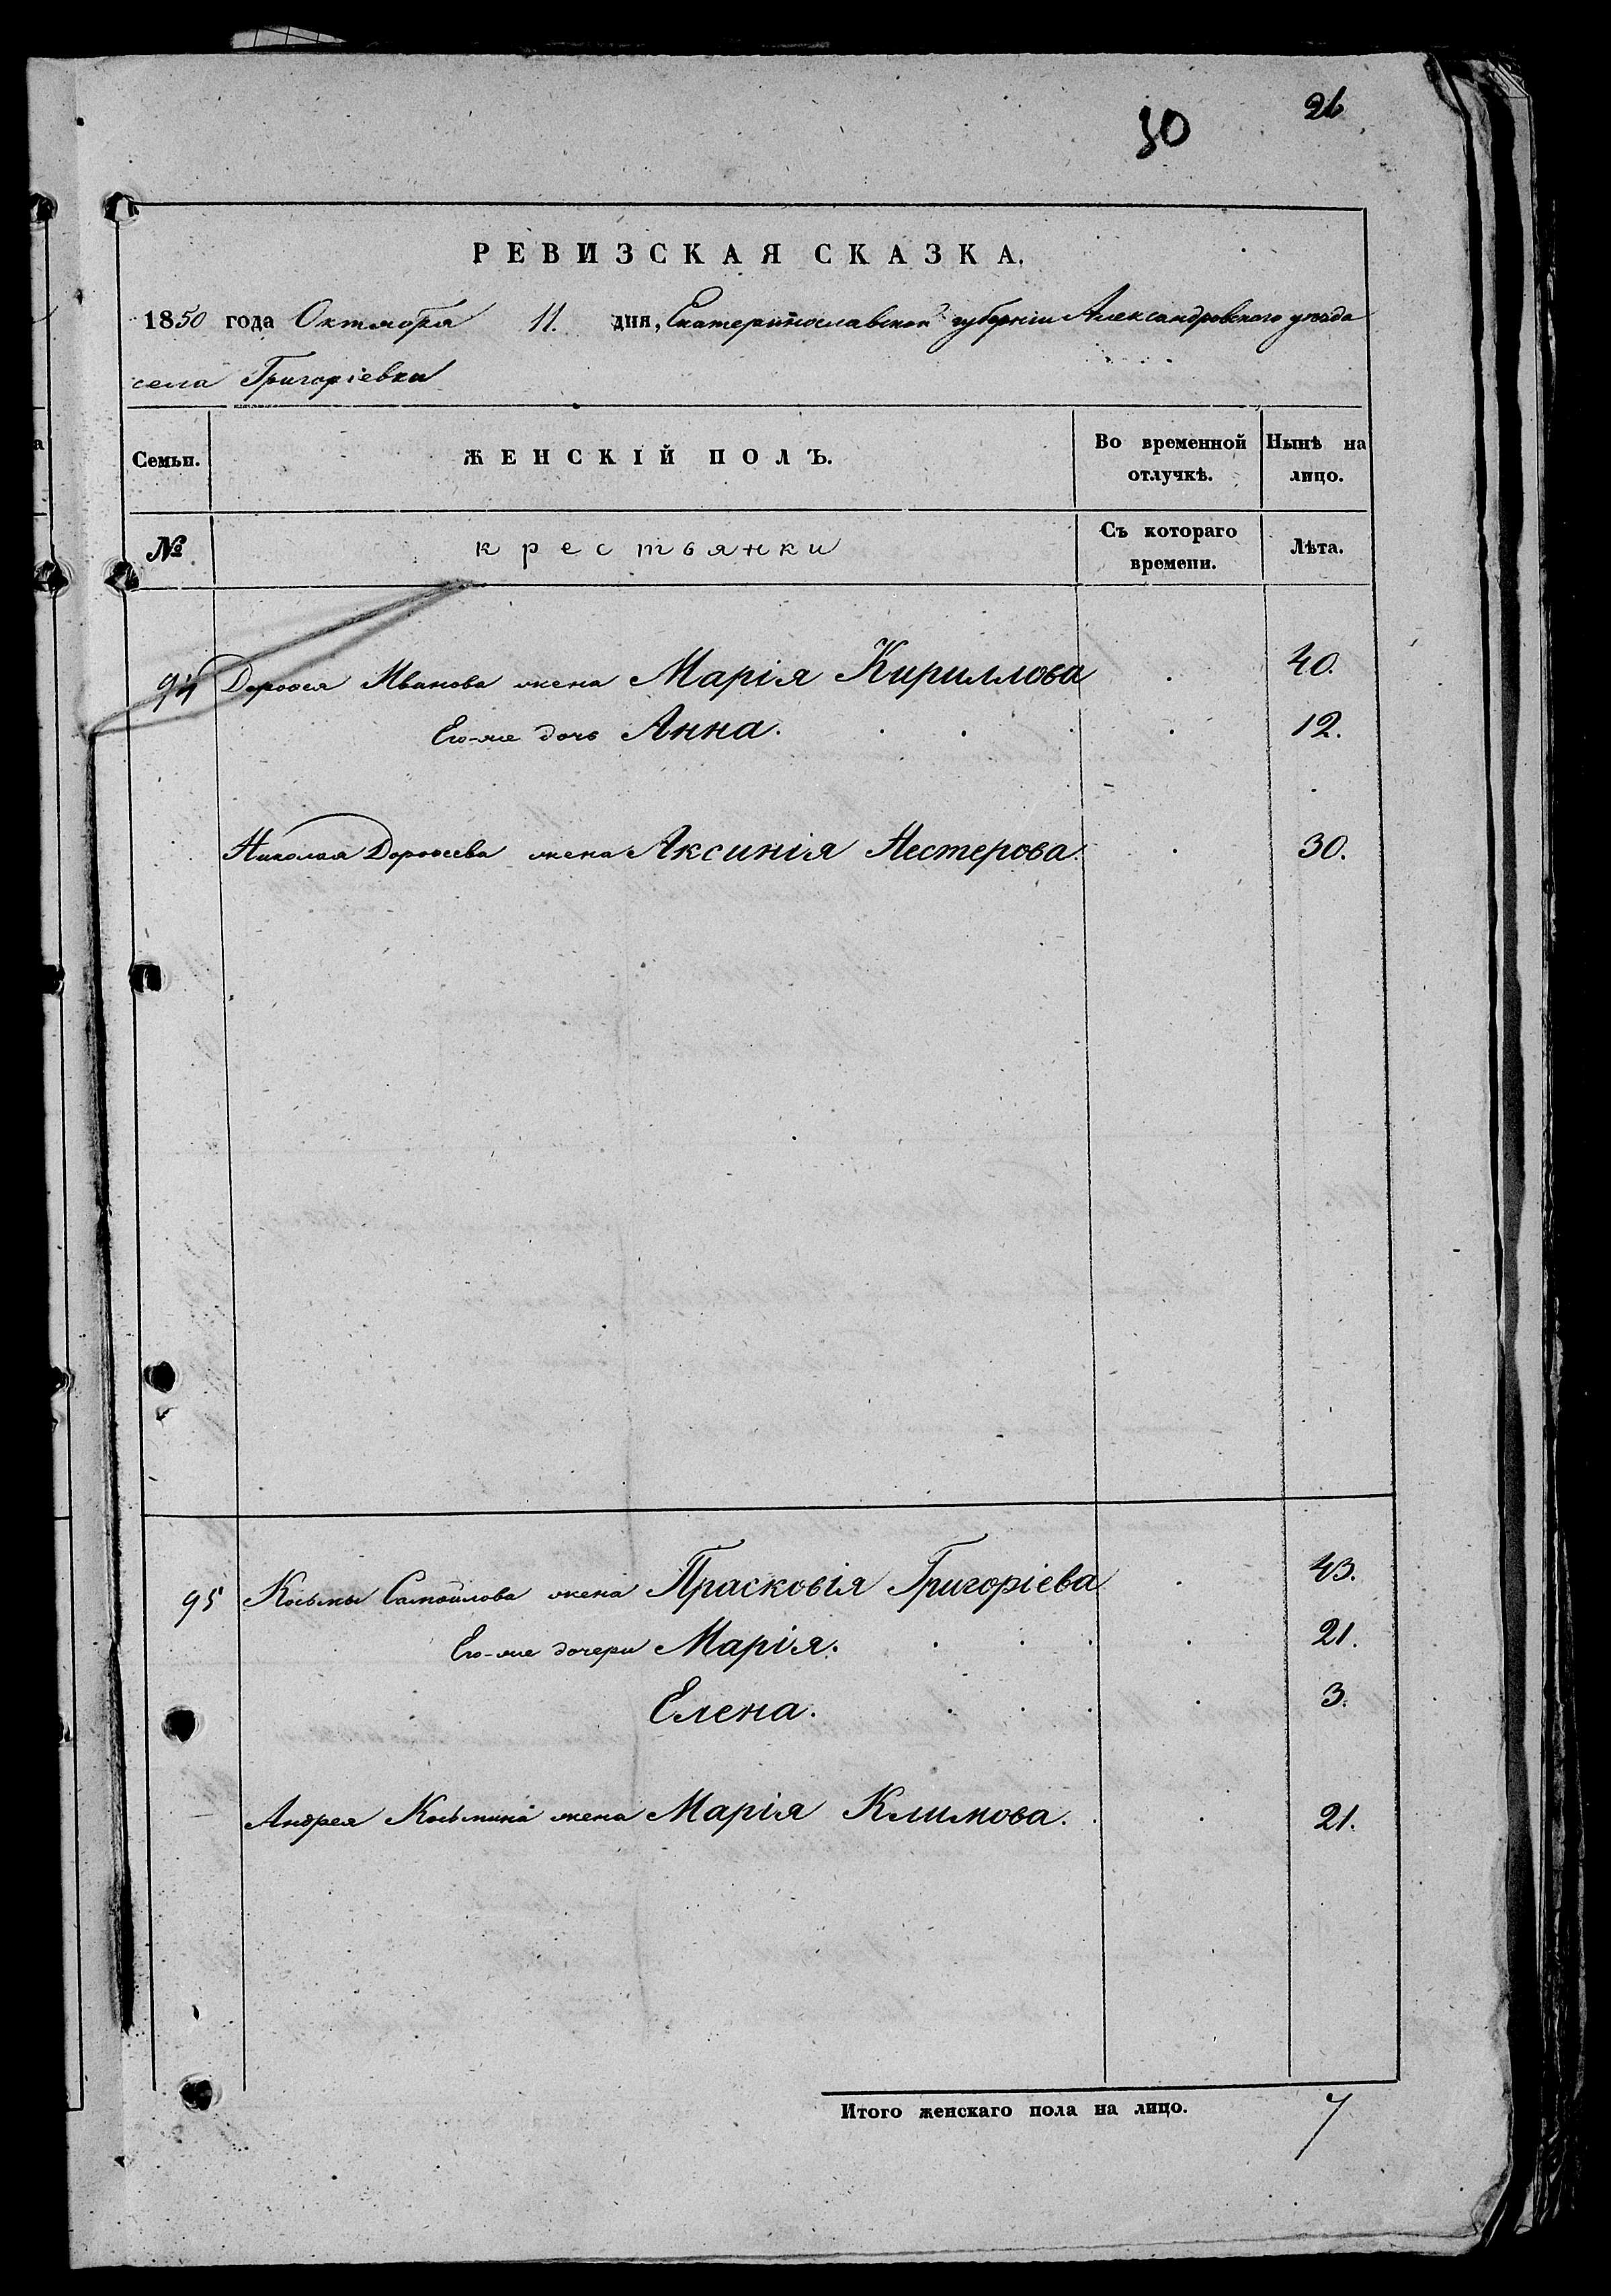 26
30
РЕВИЗСКАЯ СКАЗКА.
1850 года Октября 11. дня, Екатеринославской губерніи Александровского уѣзда
села Григоріевки
Семьи. ЖЕНСКІЙ ПОЛЪ. Во временной отлучкѣ. Нынѣ на лицо.
№ крестьянки Съ котораго времени. Лѣта.
94 Дорофея Иванова жена Марія Кириллова 40.
Его-же дочь Анна. 12.
Николая Дорофеева жена Аксинія Нестерова. 30.
95 Косьмы Самойлова жена Прасковія Григоріева 43.
Его-же дочери Марія. 21.
Елена. 3.
Андрея Косьмина жена Марія Климова. 21.
Итого женскаго пола на лицо. 7